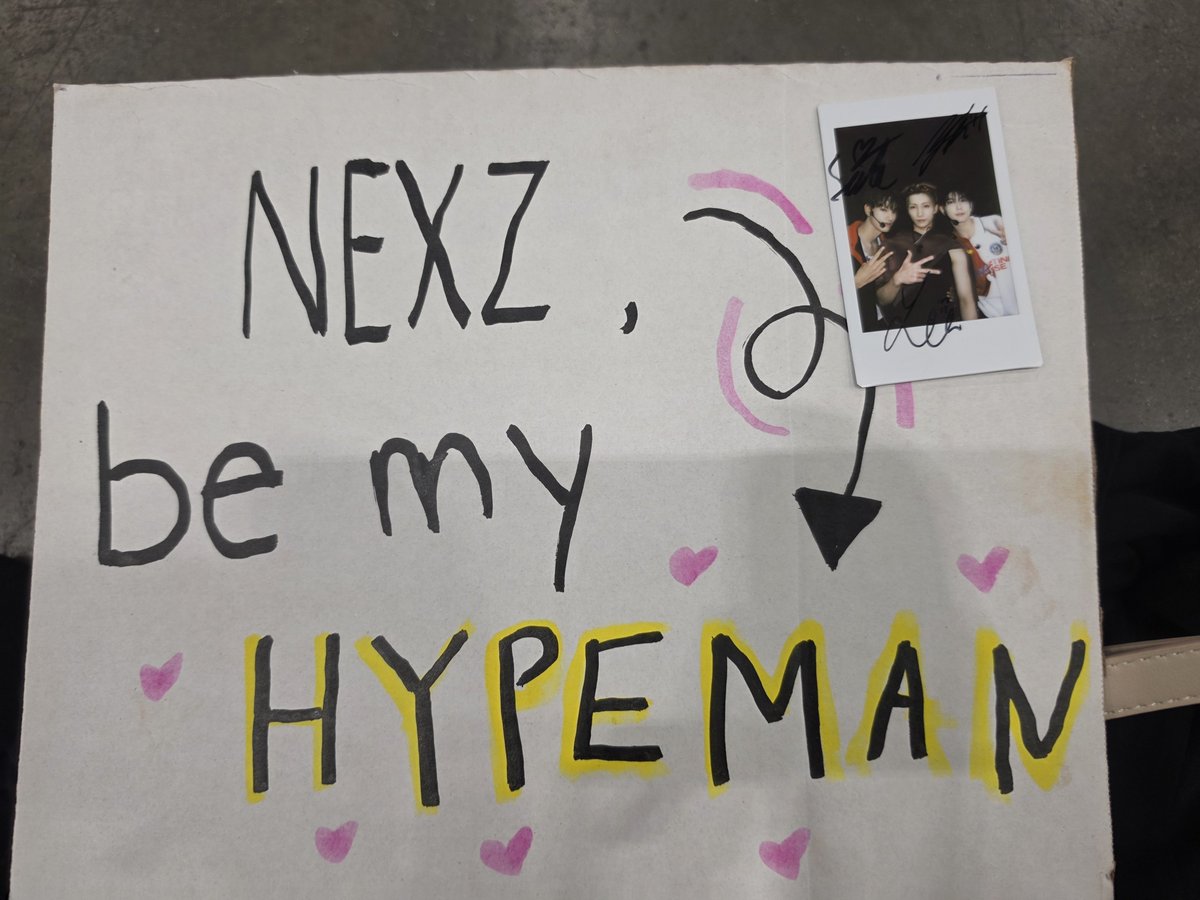 NEXZ,
be my
HYPEMAN